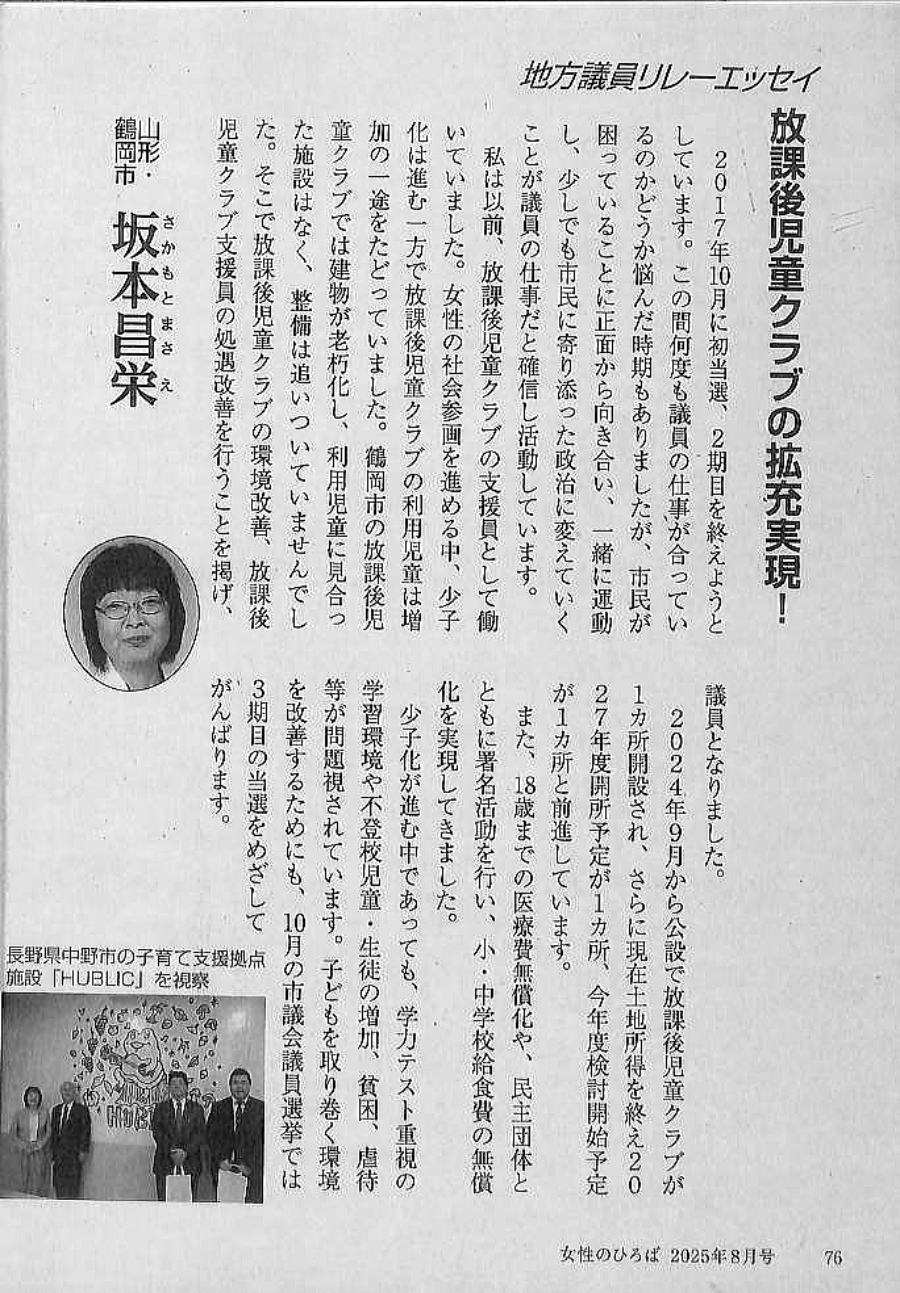 地方議員リレーエッセイ
放課後児童クラブの拡充実現！
2017年10月に初当選、2期目を終えようと
しています。この間何度も議員の仕事が合ってい
るのかどうか悩んだ時期もありましたが、市民が
困っていることに正面から向き合い、一緒に運動
し、少しでも市民に寄り添った政治に変えていく
ことが議員の仕事だと確信し活動しています。
私は以前、放課後児童クラブの支援員として働
いていました。女性の社会参画を進める中、少子
化は進む一方で放課後児童クラブの利用児童は増
加の一途をたどっていました。鶴岡市の放課後児
童クラブでは建物が老朽化し、利用児童に見合っ
た施設はなく、整備は追いついていませんでし
た。そこで放課後児童クラブの環境改善、放課後
児童クラブ支援員の処遇改善を行うことを掲げ、
山形・
鶴岡市
坂本昌栄
さかもとまさえ
議員となりました。
2024年9月から公設で放課後児童クラブが
1カ所開設され、さらに現在土地所得を終え20
27年度開所予定が1カ所、今年度検討開始予定
が1カ所と前進しています。
また、18歳までの医療費無償化や、民主団体と
ともに署名活動を行い、小・中学校給食費の無償
化を実現してきました。
少子化が進む中であっても、学力テスト重視の
学習環境や不登校児童・生徒の増加、貧困、虐待
等が問題視されています。子どもを取り巻く環境
を改善するためにも、10月の市議会議員選挙では
3期目の当選をめざして
がんばります。
長野県中野市の子育て支援拠点
施設「HUBLIC」を視察
女性のひろば 2025年8月号 76